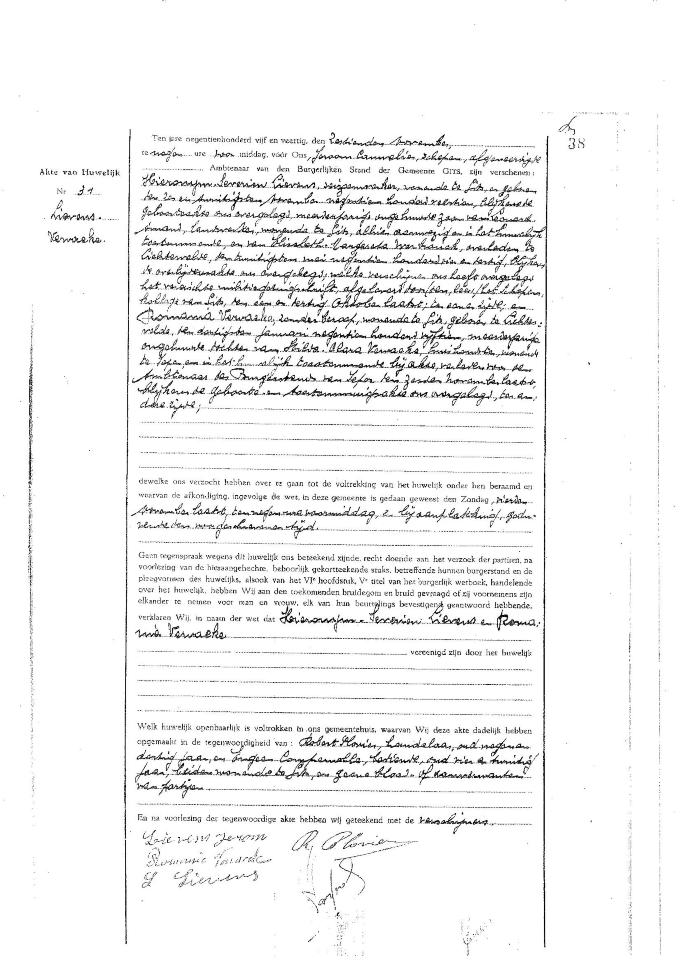 38
Akte van Huwelijk
Nr 31
Lievens
Verwaeke.
Ten jare negentienhonderd vijf en veertig, den zestienden November,
te negen ure voor middag, vóór Ons, Jeroom Cauwelier, schepen, afgeveerdigde
Ambtenaar van den Burgerlijken Stand der Gemeente GITS, zijn verschenen:
Hieronymus Severien Lievens, wonende te Gits, geboren
den zes en twintigsten November negentien honderd veertien, blijkens de
geboorteakte ons overgelegd, meerderjarige ongehuwde zoon van Leonard
Amand, landwerker, wonende te Gits, alhier aanwezig en in het huwelijk
toestemmende, en van Elisabeth overleden te
Lichtervelde, den twintigsten mei negentien honderd vier en dertig, blijkens
de overlijdensakte ons overgelegd, welke verschijner ons heeft overgelegd
het vereischte afgeleverd door
kollege van Gits, den een en dertig Oktober laatst; ten eener zijde, en
Romania Verwaeke, zonder beroep, wonende te Gits, geboren te Lichter-
velde, den dertigsten Januari negentien honderd vijftien, meerderjarige
ongehuwde dochter van Clara Verwaeke, wonende
te Ieper, en in het huwelijk toestemmende bij akte, verleden voor den
Ambtenaar des Burgerstands van Ieper den November laatst,
blijkens de geboorte- en toestemmingsakte ons overgelegd, ter an-
dere zijde;
dewelke ons verzocht hebben over te gaan tot de voltrekking van het huwelijk onder hen beraamd en
waarvan de afkondiging, ingevolge de wet, in deze gemeente is gedaan geweest den Zondag, vierden
November laatst, ten negen ure voormiddag, en bij aanplakking, gedu-
rende den voorgeschreven tijd.
Geen tegenspraak wegens dit huwelijk ons beteekend zijnde, recht doende aan het verzoek der partijen, na
voorlezing der hieraangehechte, behoorlijk gekortteekende stuks, betreffende hunnen burgerstand en de
pleegvormen des huwelijks, alsook van het VIe hoofdstuk, Ve titel van het burgerlijk werboek, handelende
over het huwelijk, hebben Wij aan den toekomenden bruidegom en bruid gevraagd of zij voornemens zijn
elkander te nemen voor man en vrouw, elk van hun beurtelings bevestigend geantwoord hebbende,
verklaren Wij, in naam der wet dat Hieronymus-Severien Lievens en Roma-
nia Verwaeke
vereenigd zijn door het huwelijk
Welk huwelijk openbaarlijk is voltrokken in ons gemeentehuis, waarvan Wij deze akte dadelijk hebben
opgemaakt in de tegenwoordigheid van: Robert Plovier, handelaar, oud negen en
dertig jaar, en Compernolle, bediende, oud vier en twintig
jaar, beiden wonende te Gits, en geene bloed- of aanverwanten
van partijen
En na voorlezing der tegenwoordige akte hebben wij geteekend met de verschijners.
Lievens Jerom
R. Plovier
Romanie
L Lievens